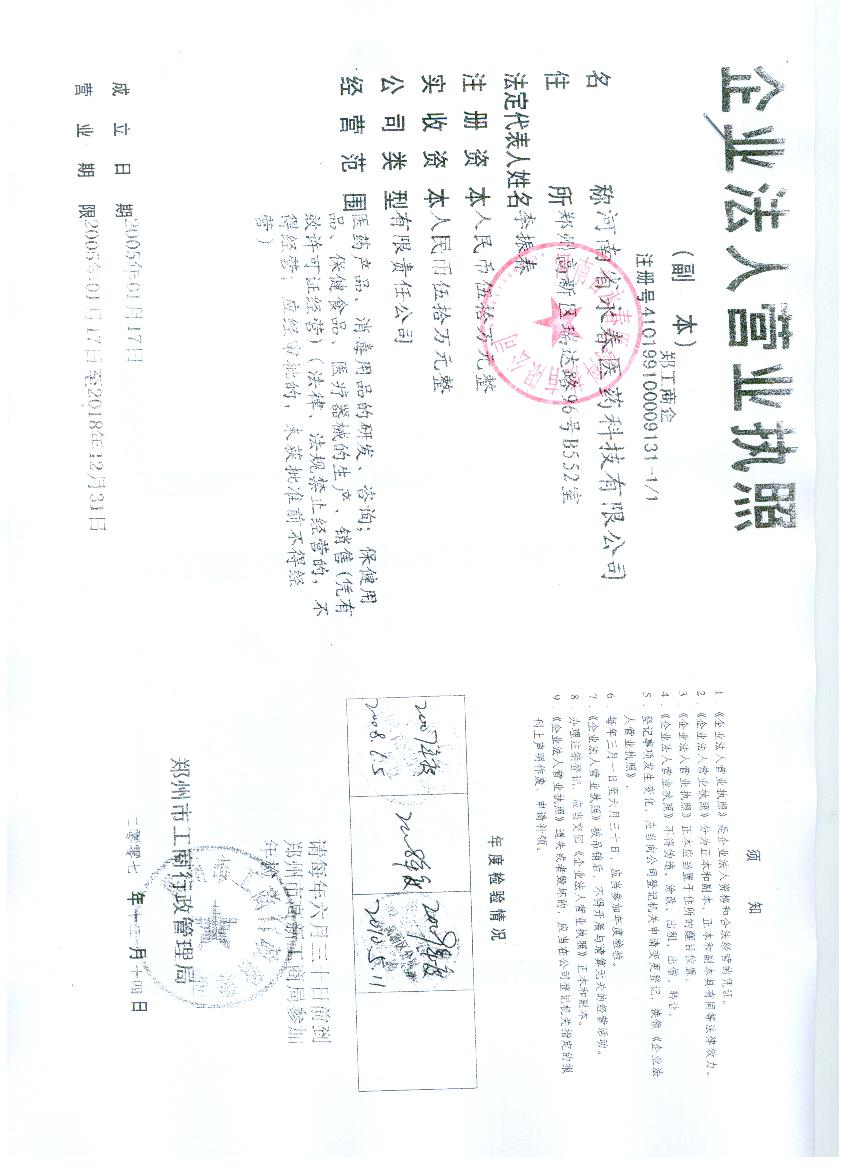 企业法人营业执照
(副 本)
郑工商企
注册号410199100009131-1/1
名 称 河南省永春医药科技有限公司
住 所 郑州高新区瑞达路96号B552室
法定代表人姓名 李振春
注 册 资 本 人民币伍拾万元整
实 收 资 本 人民币伍拾万元整
公 司 类 型 有限责任公司
经 营 范 围 医药产品、消毒用品的研发、咨询；保健用
品、保健食品、医疗器械的生产、销售(凭有
效许可证经营)(法律、法规禁止经营的，不
得经营；应经审批的，未获批准前不得经
营)
成 立 日 期 2005年01月17日
营 业 期 限 2005年01月17日至2018年12月31日
须 知
1.《企业法人营业执照》是企业法人资格和合法经营的凭证。
2.《企业法人营业执照》分为正本和副本，正本和副本具有同等法律效力。
3.《企业法人营业执照》正本应当置于住所的醒目位置。
4.《企业法人营业执照》不得伪造、涂改、出租、出借、转让。
5. 登记事项发生变化，应当向公司登记机关申请变更登记，换领《企业法
人营业执照》。
6. 每年三月一日至六月三十日，应当参加年度检验。
7.《企业法人营业执照》被吊销后，不得开展与清算无关的经营活动。
8. 办理注销登记，应当交回《企业法人营业执照》正本和副本。
9.《企业法人营业执照》遗失或者毁坏的，应当在公司登记机关指定的报
刊上声明作废，申请补领。
年度检验情况
2007年度
2008.6.5
2008年度
2009年度
2010.5.11
请每年六月三十日前到
郑州市工商局参加
年检
郑州市工商行政管理局
二零零七 年 十二 月 十四 日